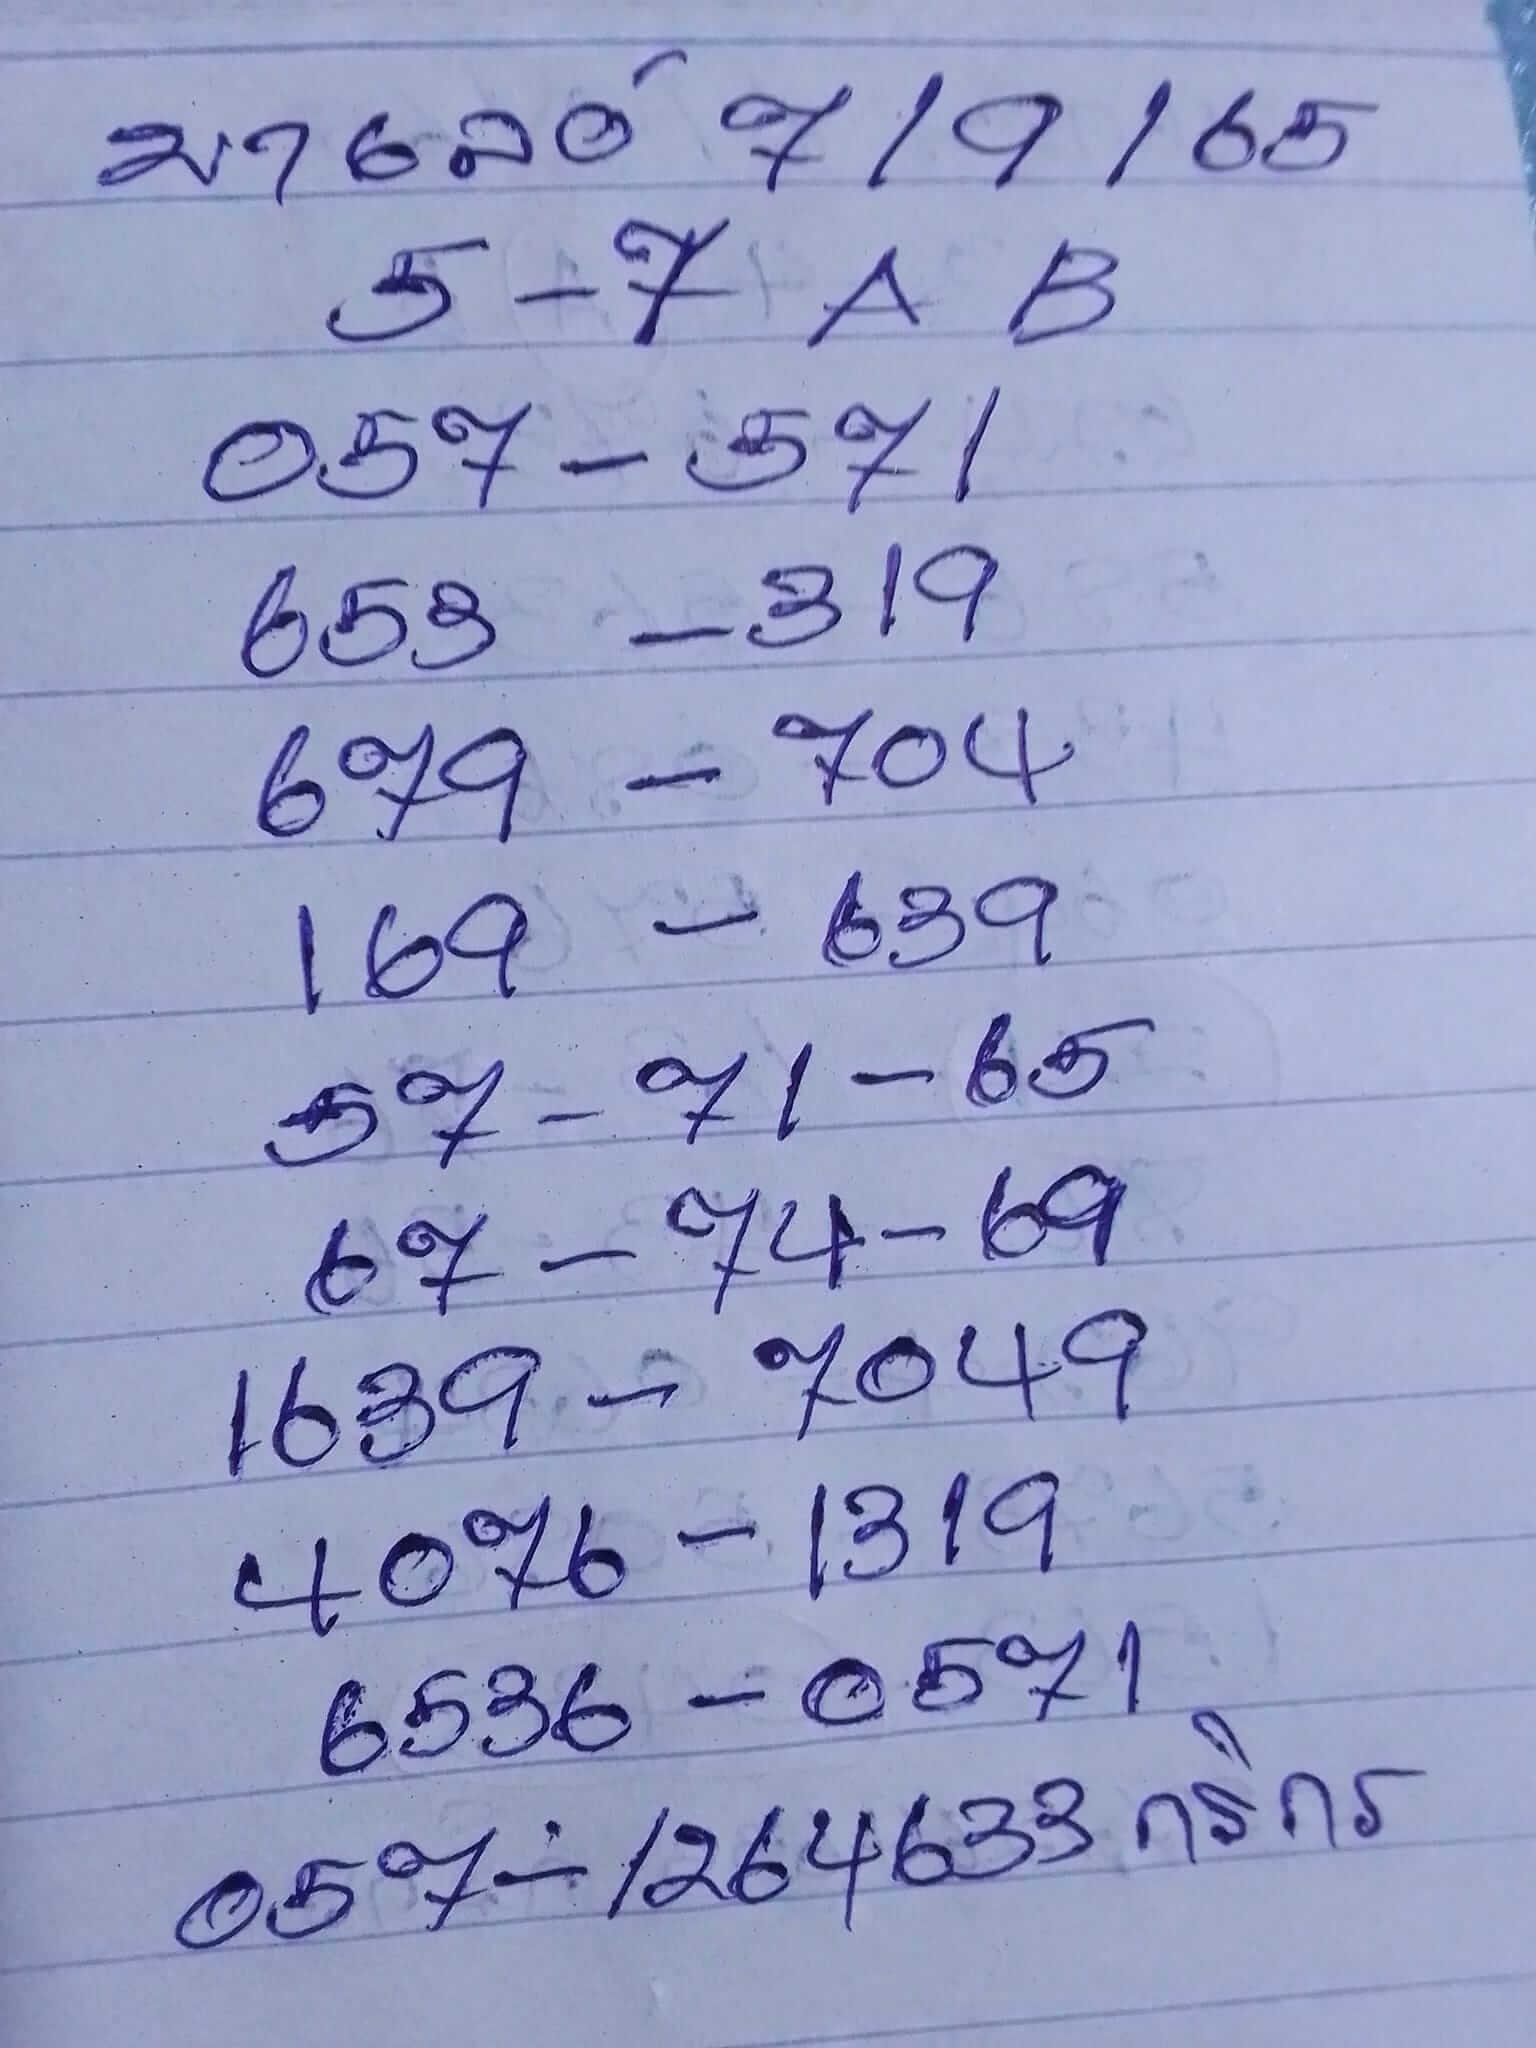 มาเลย์ 7/9/65
5-7 A B
057-571
653-319
679-704
169-639
57-71-65
67-74-69
1639-7049
4076-1319
6536-0571
057-1264633 กริกร